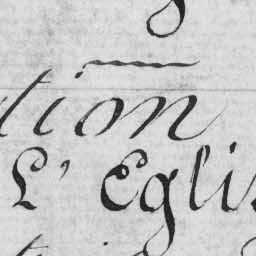 tion
L' Eglis